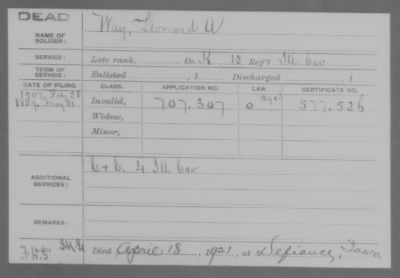 DEAD
NAME OF SOLDIER: Way, Leonard A
SERVICE: Late rank, Co. K, 12 Reg't Ill. Cav
TERM OF SERVICE: Enlisted , 1 Discharged , 1
DATE OF FILING. CLASS. APPLICATION NO. LAW. CERTIFICATE NO.
1907, Feb 28 Invalid, 707.307 O age 577.526
Widow,
Minor,
ADDITIONAL SERVICES: C & E. 4 Ill. Cav
REMARKS:
Died April 18, 1921, at Defiance, Iowa